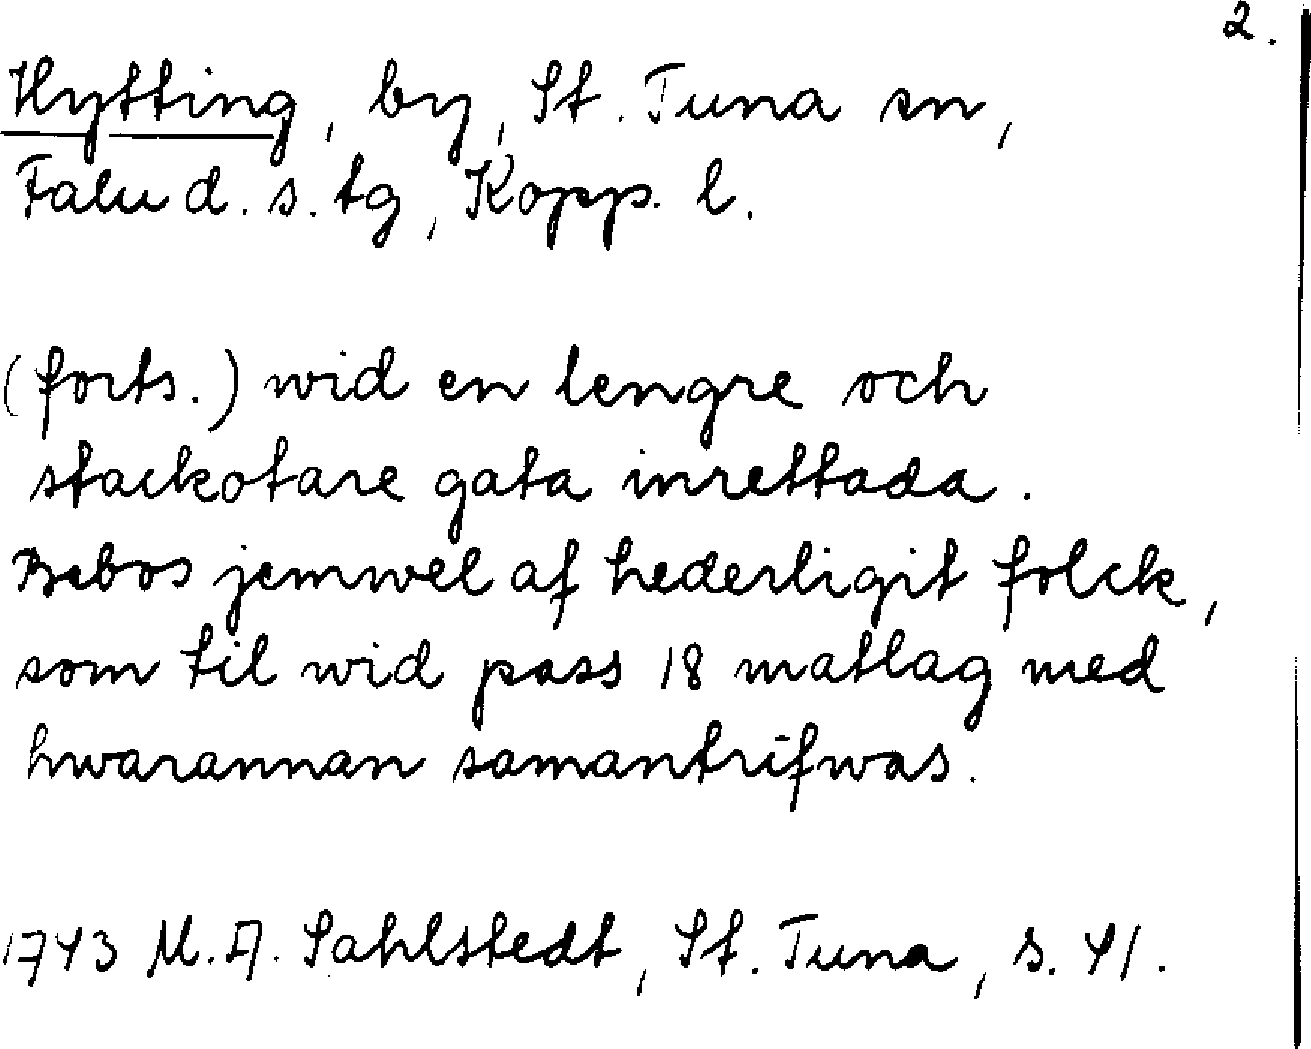 2.
Hytting, by, St. Tuna sn,
Falu d. s. tg, Kopp. l.
(forts.) wid en lengre och
stackotare gata inrettada.
Bebos jemwel af hederligit folck,
som til wid pass 18 matlag med
hwarannan samantrifwas.
1743 M. A. Sahlstedt, St. Tuna, s. 41.